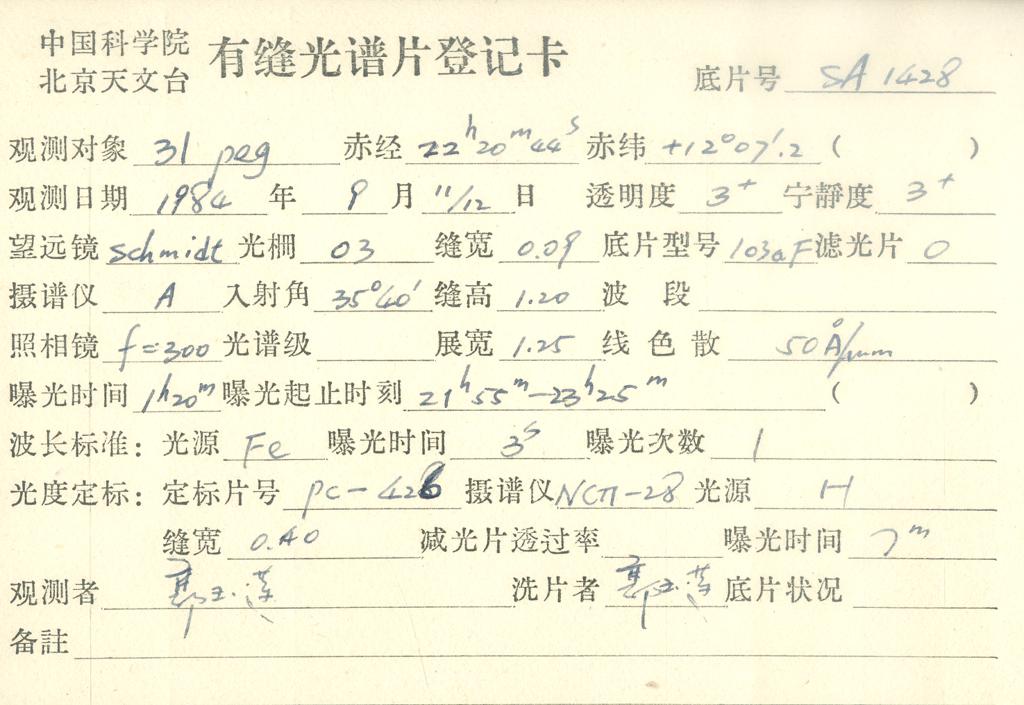 中国科学院
北京天文台
有缝光谱片登记卡
底片号 SA 1428
观测对象 31 peg 赤经 22h20m44s 赤纬 +12°07'.2 ( )
观测日期 1984 年 9 月 11/12 日 透明度 3+ 宁静度 3+
望远镜 schmidt 光栅 03 缝宽 0.09 底片型号 103aF 滤光片 0
摄谱仪 A 入射角 35°40' 缝高 1.20 波段
照相镜 f=300 光谱级 展宽 1.25 线色散 50Å/mm
曝光时间 1h20m 曝光起止时刻 21h55m—23h25m ( )
波长标准: 光源 Fe 曝光时间 3s 曝光次数 1
光度定标: 定标片号 pc-426 摄谱仪 光源 H
缝宽 0.40 减光片透过率 曝光时间 7m
观测者 洗片者 底片状况
备註